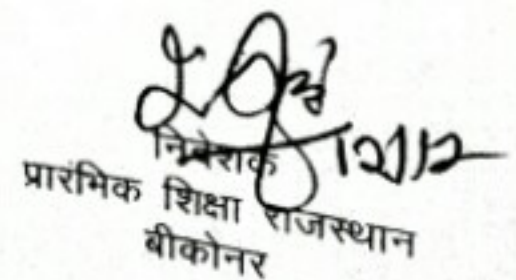 12/12
निदेशक
प्रारंभिक शिक्षा राजस्थान
बीकोनर